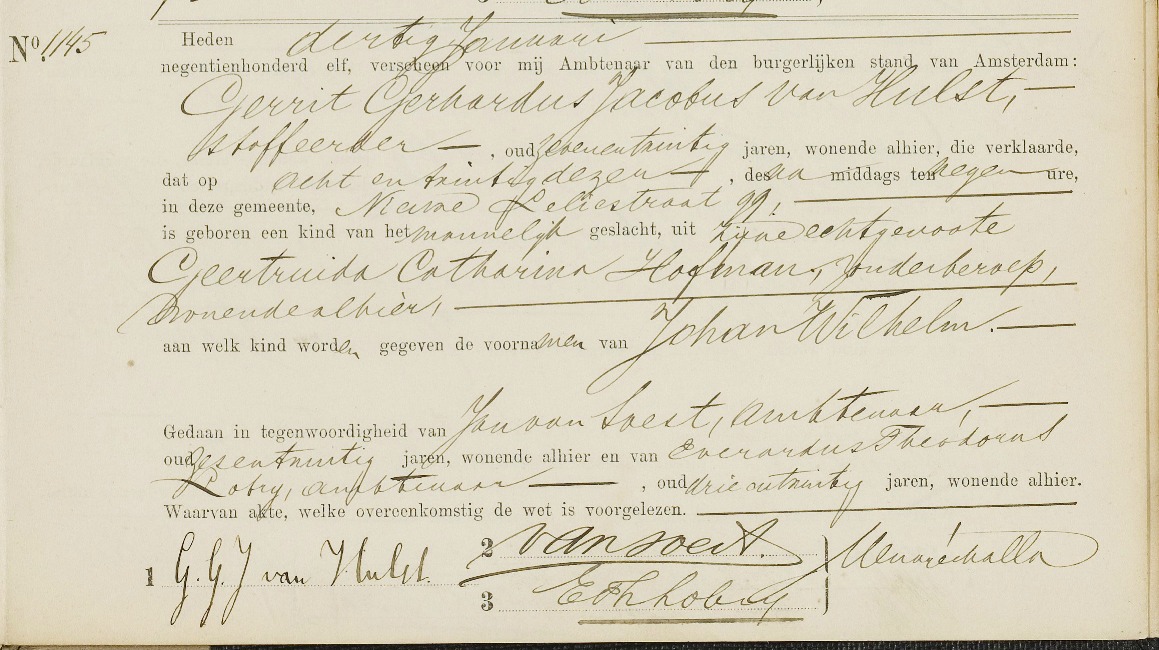 Nº 1145
Heden dertig Januari
negentienhonderd elf, verscheen voor mij Ambtenaar van den burgerlijken stand van Amsterdam:
Gerrit Gerhardus Jacobus van Hulst,
stoffeerder, oud zevenentwintig jaren, wonende alhier, die verklaarde,
dat op acht en twintig dezer, des na middags ten negen ure,
in deze gemeente, Nieuwe Leliestraat 99,
is geboren een kind van het mannelijk geslacht, uit zijne echtgenoote
Geertruida Catharina Hofman, zonder beroep,
wonende alhier,
aan welk kind worden gegeven de voornamen van Johan Wilhelm.
Gedaan in tegenwoordigheid van Jan van Soest, ambtenaar,
oud zesentwintig jaren, wonende alhier en van Everardus Theodorus
Lobry, ambtenaar, oud drieentwintig jaren, wonende alhier.
Waarvan akte, welke overeenkomstig de wet is voorgelezen.
1 G. G. J van Hulst. 2 van Soest.
3 E Th Lobry